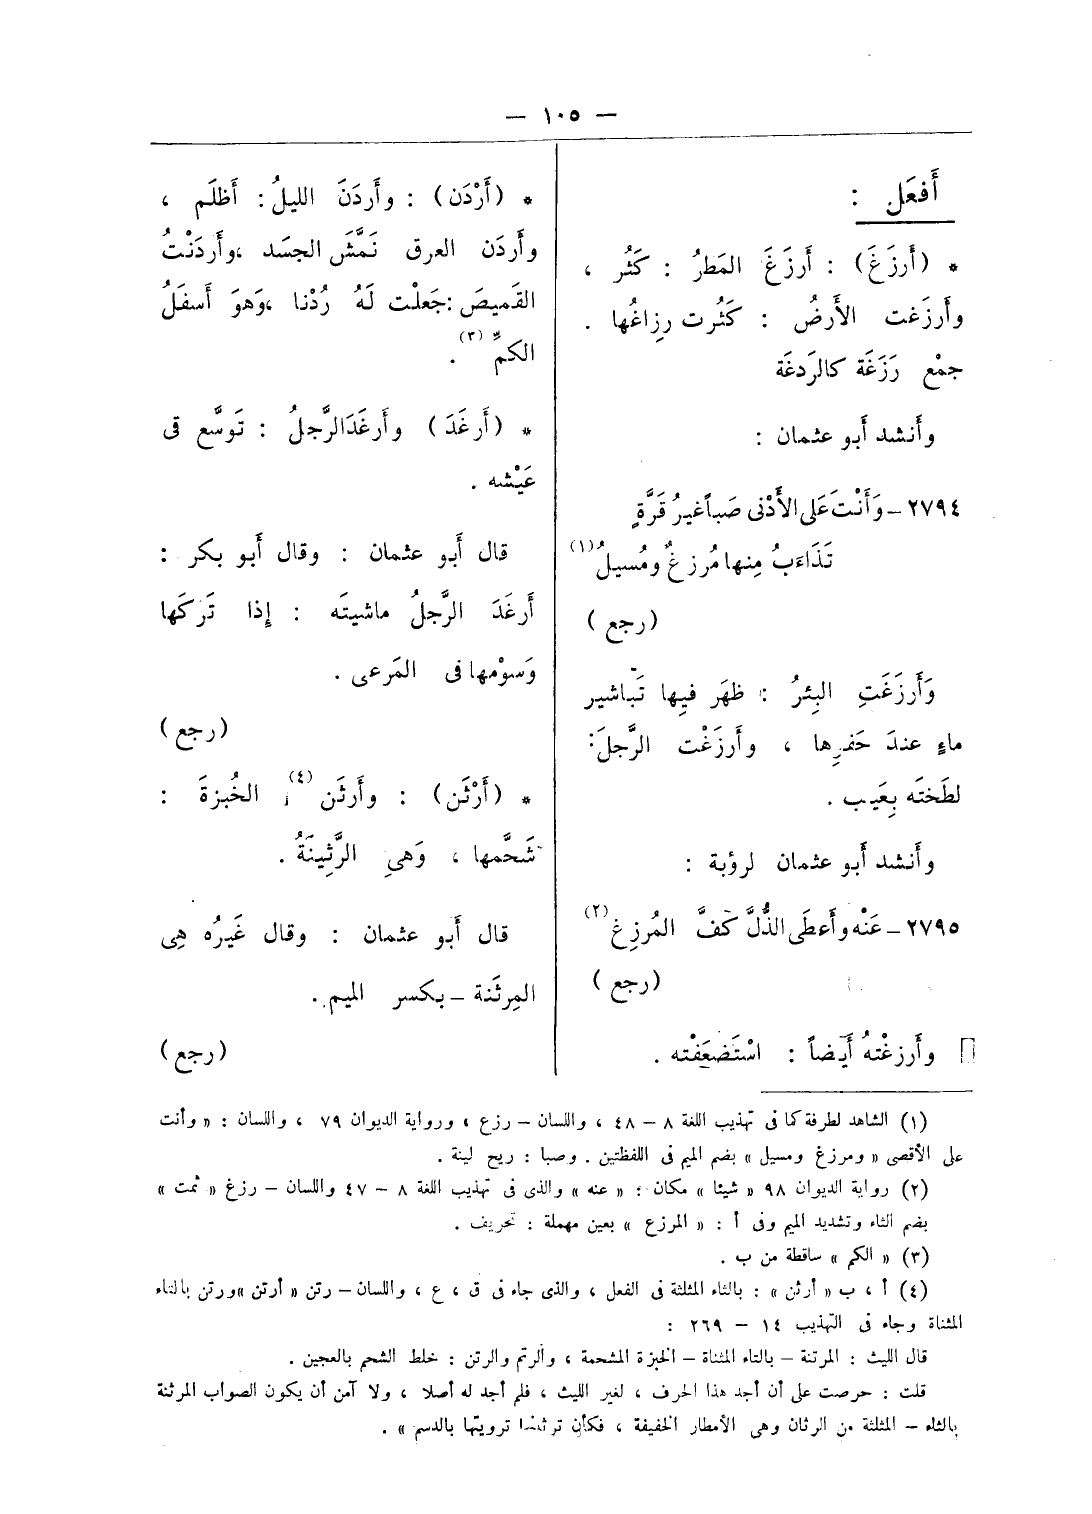 — ١٠٥ —
أَفعَل :
* (أَرزَغَ) : أَرزَغَ المَطرُ : كَثُر ،
وأَرزَغت الأَرضُ : كَثُرت رِزاغُها .
جمْع رَزَغَة كالرَدغَة
وأَنشد أَبو عثمان :
٢٧٩٤ – وَأَنْتَ عَلى الأَدْنى صَباً غيرُ قَرَّةٍ
تَذَاءَبُ مِنها مُرزغٌ ومُسيلُ (١)
(رجع)
وَأَرزَغَتِ البِئرُ : ظهَر فيها تَباشير
ماءٍ عندَ حَفرِها ، وأَرزَغْت الرَّجلَ:
لطَختَه بِعَيب .
وأَنشد أَبو عثمان لرؤبة :
٢٧٩٥ – عَنْه وأَعطَى الذُّلَّ كَفَّ المُرزغِ (٢)
(رجع)
وأَرزغْتهُ أَيضاً : اسْتَضعَفْته .
* (أَرْدَن) : وأَردَنَ الليلُ : أَظلَم ،
وأَردَن العرق نَمَّشَ الجسَد ،وأَردَنْتُ
القَميصَ :جَعلْت لَهُ رُدْنا ،وَهوَ أَسفَلُ
الكمِّ (٣) .
* (أَرغَدَ) وأَرغَدَ الرَّجلُ : تَوسَّع فى
عَيْشه .
قال أَبو عثمان : وقال أَبو بكر :
أَرغَدَ الرَّجلُ ماشيتَه : إِذا تَركَها
وَسوْمها فى المَرعى .
(رجع)
* (أَرْثَن) : وأَرثَن (٤) الخُبزةَ :
شَحَّمها ، وَهىِ الرَّثِينَةُ .
قال أَبو عثمان : وقال غَيرُه هِى
المِرثَنة – بكسر الميم .
(رجع)
(١) الشاهد لطرفة كما فى تهذيب اللغة ٨ – ٤٨ ، واللسان – رزع ، ورواية الديوان ٧٩ ، واللسان : « وأنت
على الأقصى « ومرزغ ومسيل » بضم الميم فى اللفظتين . وصبا : ريح لينة .
(٢) رواية الديوان ٩٨ « شيئا » مكان : « عنه » والذى فى تهذيب اللغة ٨ – ٤٧ واللسان – رزغ « ثمت »
بضم الثاء وتشديد الميم وفى أ : « المرزع » بعين مهملة : تحريف .
(٣) « الكم » ساقطة من ب .
(٤) أ ، ب « أرثن » : بالثاء المثلثة فى الفعل ، والذى جاء فى ق ، ع ، واللسان – رتن « أرتن »ورتن بالتاء
المثناة وجاء فى التهذيب ١٤ – ٢٦٩ :
قال الليث : المرتنة – بالتاء المثناة – الخبزة المشحمة ، والرتم والرتن : خلط الشحم بالعجين .
قلت : حرصت على أن أجد هذا الحرف ، لغير الليث ، فلم أجد له أصلا ، ولا آمن أن يكون الصواب المرثنة
بالثاء – المثلثة من الرثان وهى الأمطار الخفيفة ، فكأن ترثينها ترويتها بالدسم » .